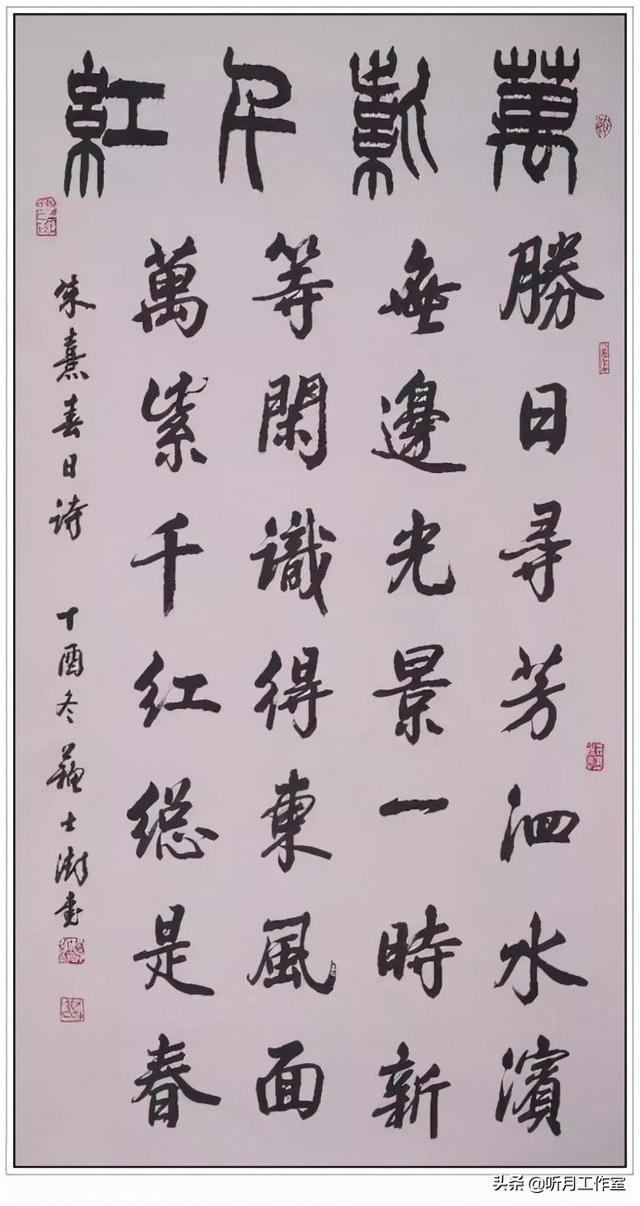 萬紫千紅
勝日尋芳泗水濱
無邊光景一時新
等閑識得東風面
萬紫千红總是春
朱熹春日诗 丁酉冬 蘇士澍書
头条 @听月工作室